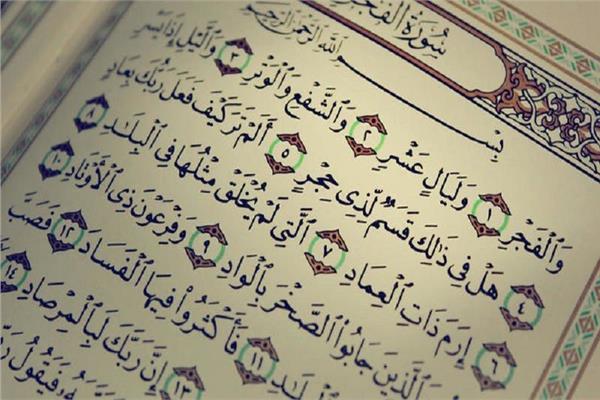 سُورَةُ الْفَجْرِ
بِسْمِ اللَّهِ الرَّحْمَٰنِ الرَّحِيمِ
وَٱلْفَجْرِ ١ وَلَيَالٍ عَشْرٍ ٢ وَٱلشَّفْعِ وَٱلْوَتْرِ ٣ وَٱلَّيْلِ إِذَا يَسْرِ
٤ هَلْ فِى ذَٰلِكَ قَسَمٌ لِّذِى حِجْرٍ ٥ أَلَمْ تَرَ كَيْفَ فَعَلَ رَبُّكَ بِعَادٍ
٦ إِرَمَ ذَاتِ ٱلْعِمَادِ ٧ ٱلَّتِى لَمْ يُخْلَقْ مِثْلُهَا فِى ٱلْبِلَٰدِ ٨
ٱلَّذِينَ جَابُوا۟ ٱلصَّخْرَ بِٱلْوَادِ ٩ وَفِرْعَوْنَ ذِى ٱلْأَوْتَادِ ١٠
ٱلْبِلَٰدِ ١١ فَأَكْثَرُوا۟ فِيهَا ٱلْفَسَادَ ١٢ فَصَبَّ
١٣ إِنَّ رَبَّكَ لَبِٱلْمِرْصَادِ ١٤
فَيَقُولُ